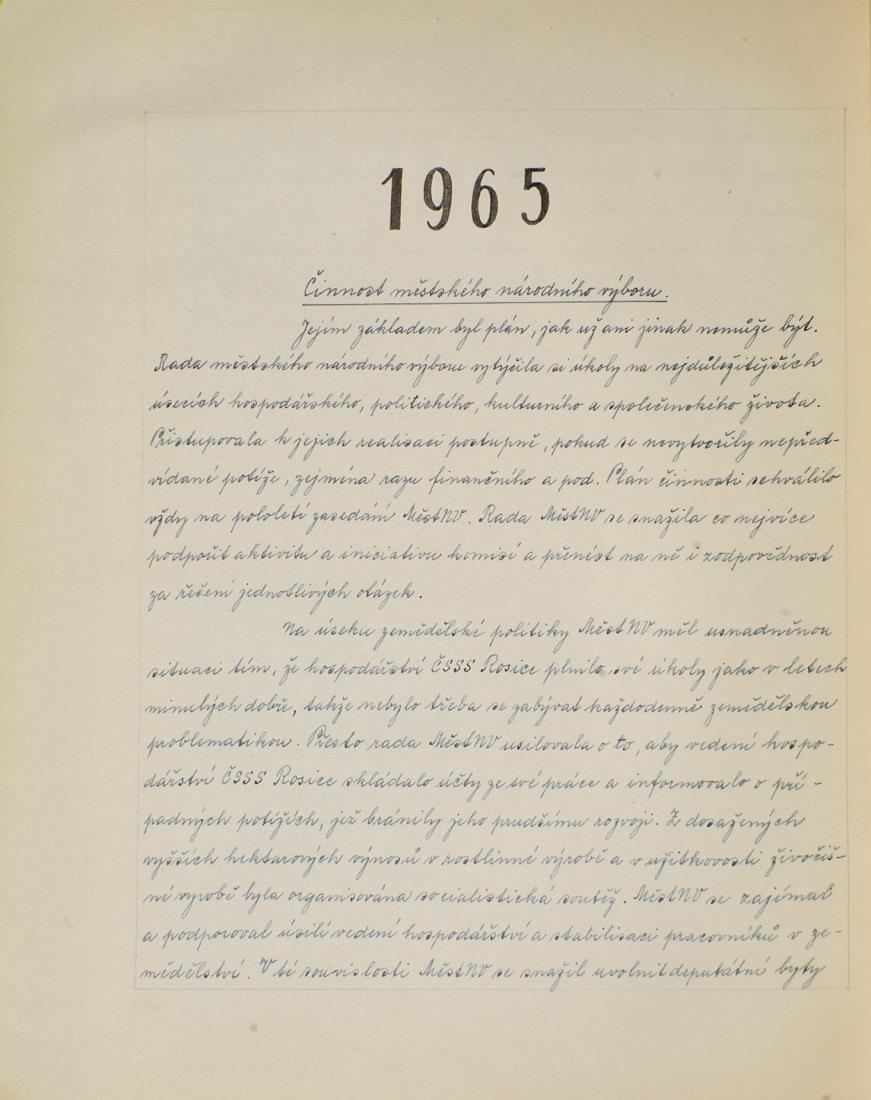 1965
Činnost městského národního výboru.
Jejím základem byl plán, jak už ani jinak nemůže být.
Rada městského národního výboru vytýčila si úkoly na nejdůležitějších
úsecích hospodářského, politického, kulturního a společenského života.
Přistupovala k jejich realisaci postupně, pokud se nevytvořily nepřed-
vídané potíže, zejména razu finančního a pod. Plán činnosti schválilo
vždy na pololetí zasedání MěstNV. Rada MěstNV se snažila co nejvíce
podpořit aktivitu a iniciativu komisí a přenést na ně i zodpovědnost
za řešení jednotlivých otázek.
Na úseku zemědělské politiky MěstNV měl usnadněnou
situaci tím, že hospodářství ČSSS Rosice plnilo své úkoly jako v letech
minulých dobře, takže nebylo třeba se zabývat každodenně zemědělskou
problematikou. Přesto rada MěstNV usilovala o to, aby vedení hospo-
dářství ČSSS Rosice skládalo účty ze své práce a informovalo o pří-
padných potížích, jež bránily jeho prudšímu rozvoji. Z dosažených
vyšších hektarových výnosů v rostlinné výrobě a v užitkovosti živočiš-
né vyrobě byla organisována socialistická soutěž. MěstNV se zajímal
a podporoval úsilí vedení hospodářství a stabilisaci pracovníků v ze-
mědělství. V té souvislosti MěstNV se snažil uvolnit deputátní byty